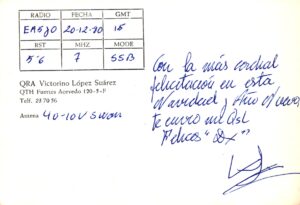 RADIO FECHA GMT
EA5JO 20-12-80 15
RST MHZ MODE
5 6 7 SSB
QRA Victorino López Suárez
QTH Fumes Acevedo 120-5-F
Telf. 22 70 56
Antena 40-10V Swan
Con la más cordial
felicitación en esta
Navidad, Año Nuevo,
te envio mi Qsl
"Dx"